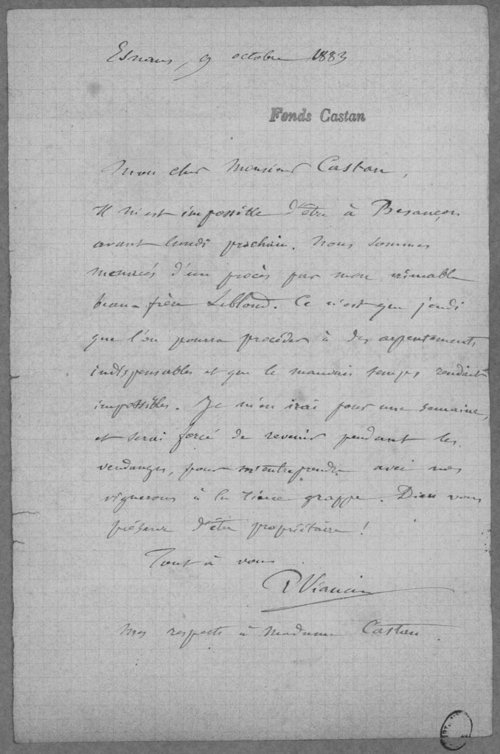 Esnans, 9 octobre 1883
Fonds Castan
Mon cher Monsieur Castan,
Il m'est impossible d'être à Besançon
avant lundi prochain. Nous sommes
menacés d'un procès par mon aimable
beau-frère Leblond. Ce n'est que jeudi
que l'on pourra procéder à des arpentements
indispensables et que le mauvais temps rendait
impossibles. Je m'en irai pour une semaine,
et serai forcé de revenir pendant les
vendanges, pour m'entreprendre avec mes
vignerons à la tierce grappe. Dieu vous
préserve d'être propriétaire !
Tout à vous
Mes respects à Madame Castan.